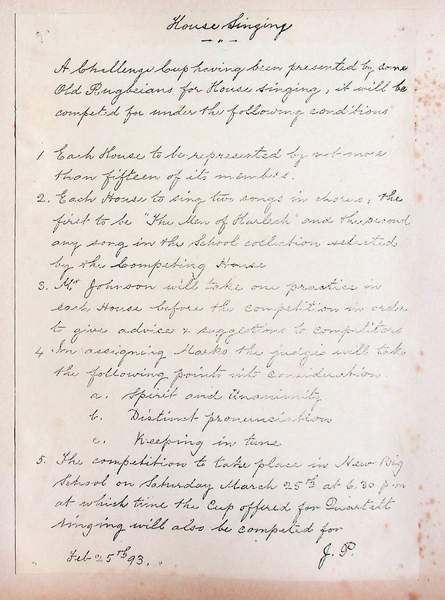 House Singing
A Challenge Cup having been presented by some
Old Rugbeians for House singing, it will be
competed for under the following conditions
1 Each House to be represented by not more
than fifteen of its members.
2. Each House to sing two songs in chorus, the
first to be "The Men of Harlech" and the second
any song in the School collection selected
by the Competing House
3. Mr Johnson will take one practice in
each House before the competition in order
to give advice & suggestions to competitors
4 In assigning Marks the judges will take
the following points into consideration
a. Spirit and Unanimity
b. Distinct pronunciation
c. Keeping in tune
5. The competition to take place in New Big
School on Saturday March 25th at 6.30 p.m
at which time the Cup offered for Quartett
singing will also be competed for
Feb 25th 93. J. P.